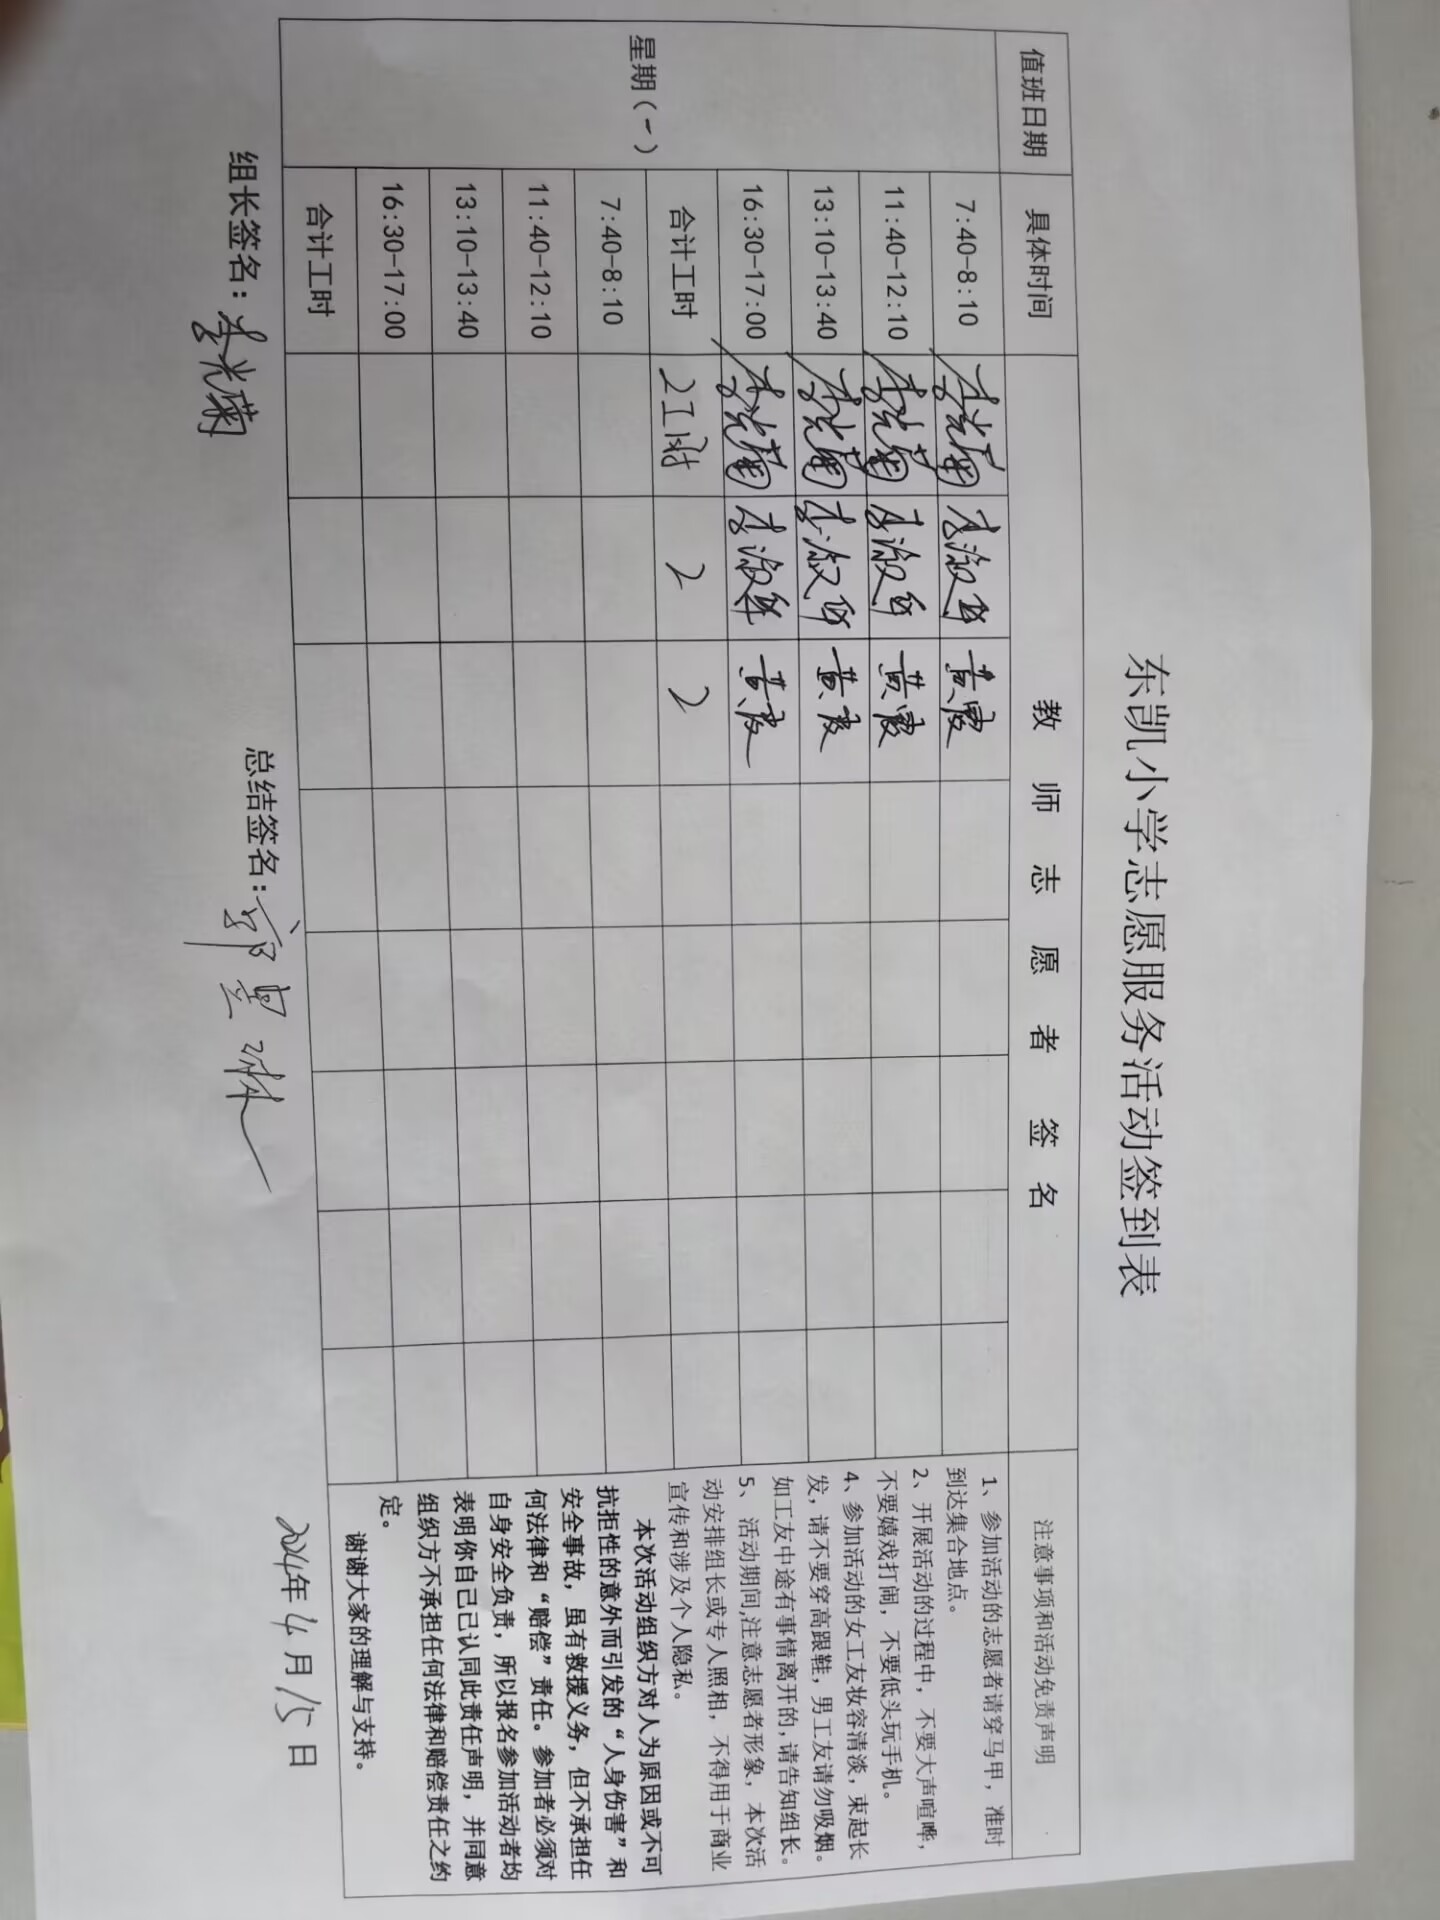 东凯小学志愿服务活动签到表
值班日期 具体时间 教师志愿者签名 注意事项和活动免责声明
星期（一）
7:40-8:10 李光菊 李淑华 黄霞
11:40-12:10 李光菊 李淑华 黄霞
13:10-13:40 李光菊 李淑华 黄霞
16:30-17:00 李光菊 李淑华 黄霞
合计工时 2工时 2 2
7:40-8:10
11:40-12:10
13:10-13:40
16:30-17:00
合计工时
1、参加活动的志愿者请穿马甲，准时
到达集合地点。
2、开展活动的过程中，不要大声喧哗，
不要嬉戏打闹，不要低头玩手机。
4、参加活动的女工友妆容清淡，束起长
发，请不要穿高跟鞋，男工友请勿吸烟。
如工友中途有事情离开的,请告知组长。
5、活动期间,注意志愿者形象，本次活
动安排组长或专人照相，不得用于商业
宣传和涉及个人隐私。
本次活动组织方对人为原因或不可
抗拒性的意外而引发的“人身伤害”和
安全事故，虽有救援义务，但不承担任
何法律和“赔偿”责任。参加者必须对
自身安全负责，所以报名参加活动者均
表明你自己己认同此责任声明，并同意
组织方不承担任何法律和赔偿责任之约
定。
谢谢大家的理解与支持。
组长签名：李光菊 总结签名： 2024年4月15日